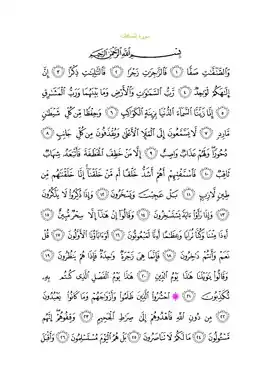 سورة الصافات
بِسْمِ اللَّهِ الرَّحْمَٰنِ الرَّحِيمِ
وَالصَّافَّاتِ صَفًّا ۝١ فَالزَّاجِرَاتِ زَجْرًا ۝٢ فَالتَّالِيَاتِ ذِكْرًا ۝٣ إِنَّ
إِلَٰهَكُمْ لَوَاحِدٌ ۝٤ رَبُّ السَّمَاوَاتِ وَالْأَرْضِ وَمَا بَيْنَهُمَا وَرَبُّ الْمَشَارِقِ
۝٥ إِنَّا زَيَّنَّا السَّمَاءَ الدُّنْيَا بِزِينَةٍ الْكَوَاكِبِ ۝٦ وَحِفْظًا مِنْ كُلِّ شَيْطَانٍ
مَارِدٍ ۝٧ لَا يَسَّمَّعُونَ إِلَى الْمَلَإِ الْأَعْلَىٰ وَيُقْذَفُونَ مِنْ كُلِّ جَانِبٍ ۝٨
دُحُورًا وَلَهُمْ عَذَابٌ وَاصِبٌ ۝٩ إِلَّا مَنْ خَطِفَ الْخَطْفَةَ فَأَتْبَعَهُ شِهَابٌ
ثَاقِبٌ ۝١٠ فَاسْتَفْتِهِمْ أَهُمْ أَشَدُّ خَلْقًا أَمْ مَنْ خَلَقْنَا إِنَّا خَلَقْنَاهُمْ مِنْ
طِينٍ لَازِبٍ ۝١١ بَلْ عَجِبْتَ وَيَسْخَرُونَ ۝١٢ وَإِذَا ذُكِّرُوا لَا يَذْكُرُونَ
۝١٣ وَإِذَا رَأَوْا آيَةً يَسْتَسْخِرُونَ ۝١٤ وَقَالُوا إِنْ هَٰذَا إِلَّا سِحْرٌ مُبِينٌ ۝١٥
أَإِذَا مِتْنَا وَكُنَّا تُرَابًا وَعِظَامًا أَإِنَّا لَمَبْعُوثُونَ ۝١٦ أَوَآبَاؤُنَا الْأَوَّلُونَ ۝١٧ قُلْ
نَعَمْ وَأَنْتُمْ دَاخِرُونَ ۝١٨ فَإِنَّمَا هِيَ زَجْرَةٌ وَاحِدَةٌ فَإِذَا هُمْ يَنْظُرُونَ ۝١٩
وَقَالُوا يَا وَيْلَنَا هَٰذَا يَوْمُ الدِّينِ ۝٢٠ هَٰذَا يَوْمُ الْفَصْلِ الَّذِي كُنْتُمْ بِهِ
تُكَذِّبُونَ ۝٢١ احْشُرُوا الَّذِينَ ظَلَمُوا وَأَزْوَاجَهُمْ وَمَا كَانُوا يَعْبُدُونَ
۝٢٢ مِنْ دُونِ اللَّهِ فَاهْدُوهُمْ إِلَىٰ صِرَاطِ الْجَحِيمِ ۝٢٣ وَقِفُوهُمْ إِنَّهُمْ
مَسْئُولُونَ ۝٢٤ مَا لَكُمْ لَا تَنَاصَرُونَ ۝٢٥ بَلْ هُمُ الْيَوْمَ مُسْتَسْلِمُونَ ۝٢٦ وَأَقْبَلَ